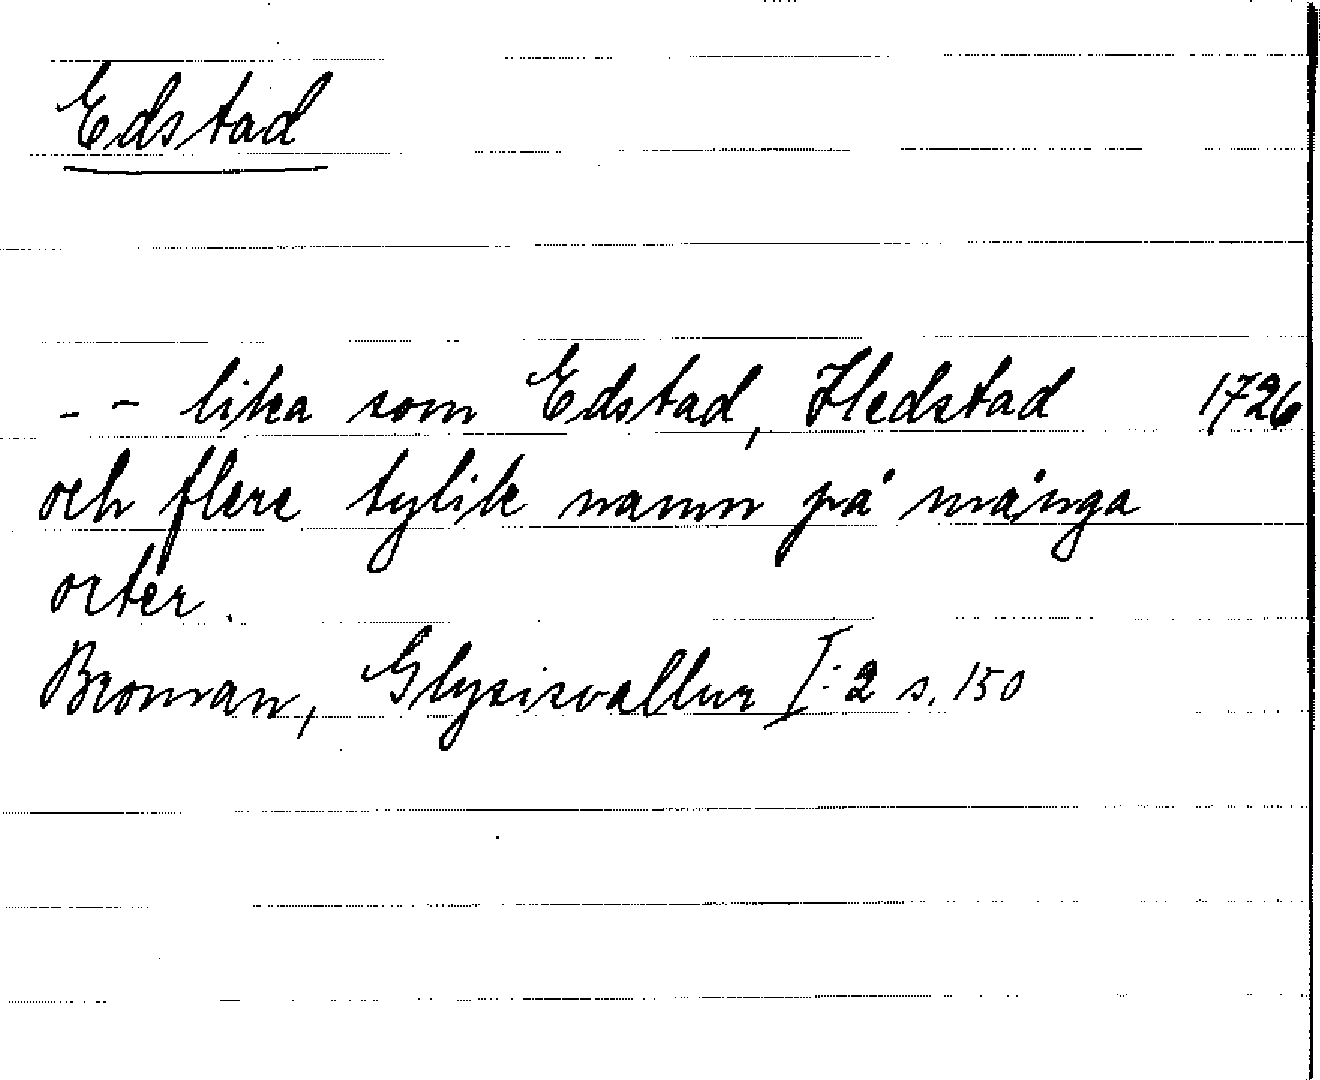 Edstad
- - lika som Edstad, Hedstad 1726
och flere tylik namn på många
orter.
Broman, Glysisvallur I:2 s. 150